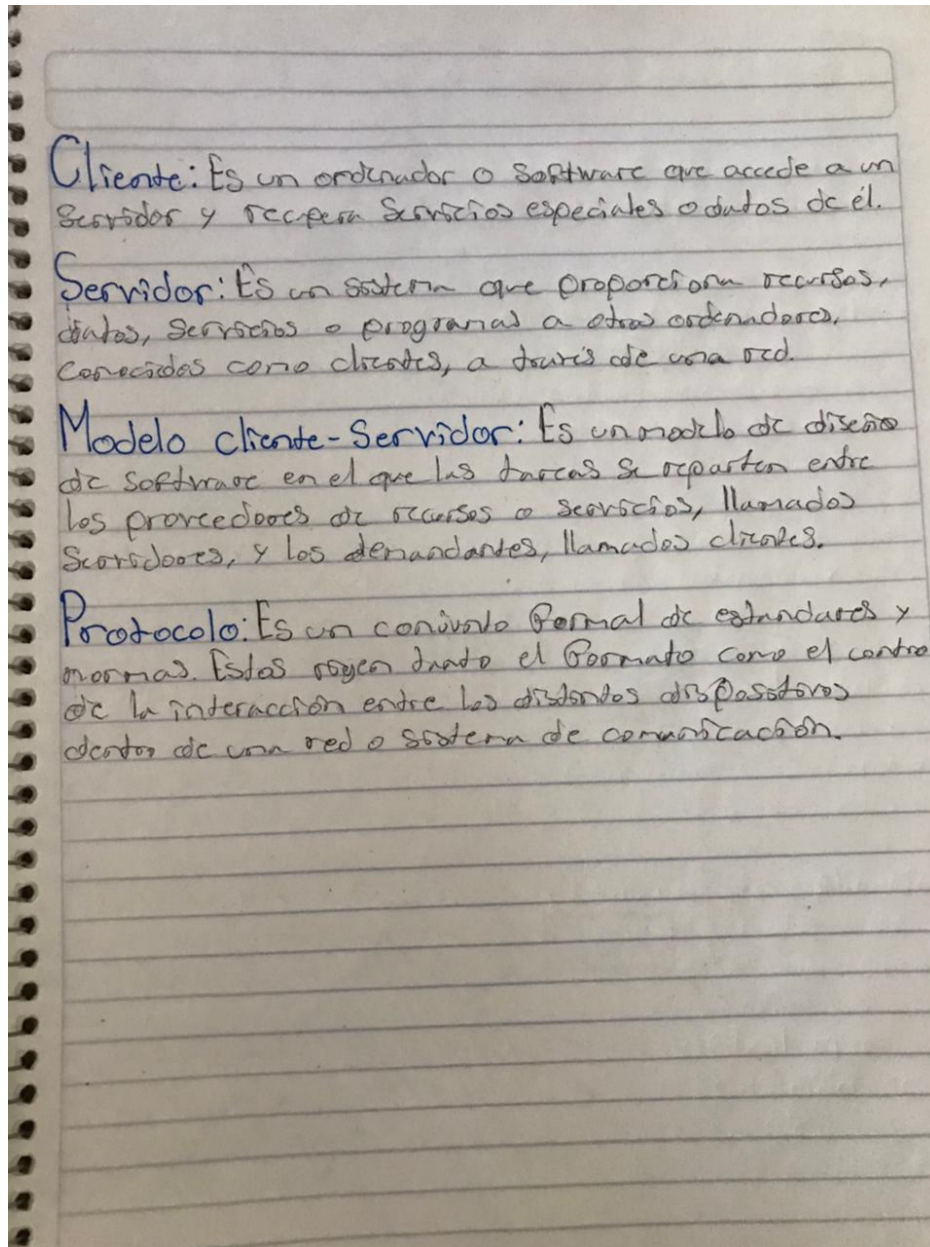 Cliente: Es un ordenador o software que accede a un
servidor y recupera servicios especiales o datos de él.
Servidor: Es un sistema que proporciona recursos,
datos, servicios o programas a otros ordenadores,
conocidos como clientes, a través de una red.
Modelo cliente-Servidor: Es un modelo de diseño
de software en el que las tareas se reparten entre
los proveedores de recursos o servicios, llamados
Servidores, y los demandantes, llamados clientes.
Protocolo: Es un conjunto formal de estandares y
normas. Estos rigen tanto el formato como el contro
de la interacción entre los distintos dispositivos
dentro de una red o sistema de comunicación.